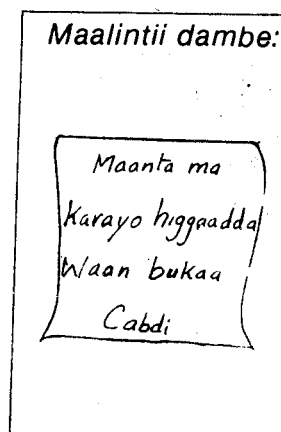 Maalintii dambe:
Maanta ma
Karayo higgaadda
Waan bukaa
Cabdi